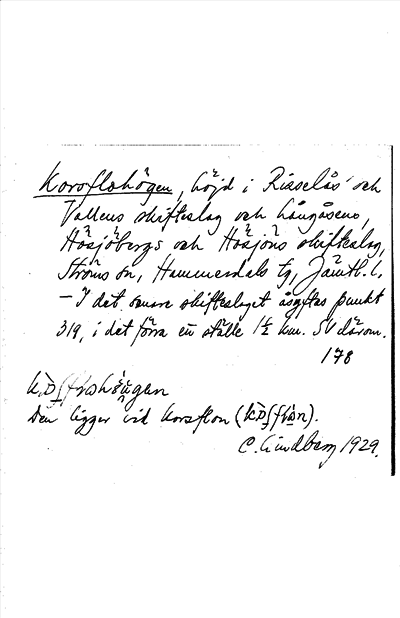 Korsflohögen, höjd i Risselås och
Vallens skifteslag och Långåsens,
Hösjöbergs och Hösjöns skifteslag,
Ströms sn, Hammerdals tg, Jämtl. l.
– I det senare skifteslaget åsyftas punkt
319, i det förra en ställe 1½ km. SV därom.
178
Den ligger vid Korsflon
C. Lindberg 1929.